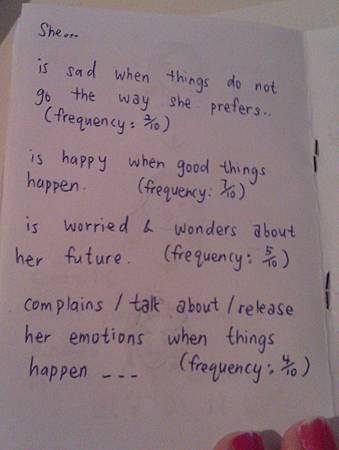 She...
is sad when things do not
go the way she prefers..
(frequency: 3/10)
is happy when good things
happen. (frequency: 7/10)
is worried & wonders about
her future. (frequency: 5/10)
complains / talk about / release
her emotions when things
happen --- (frequency: 4/10)